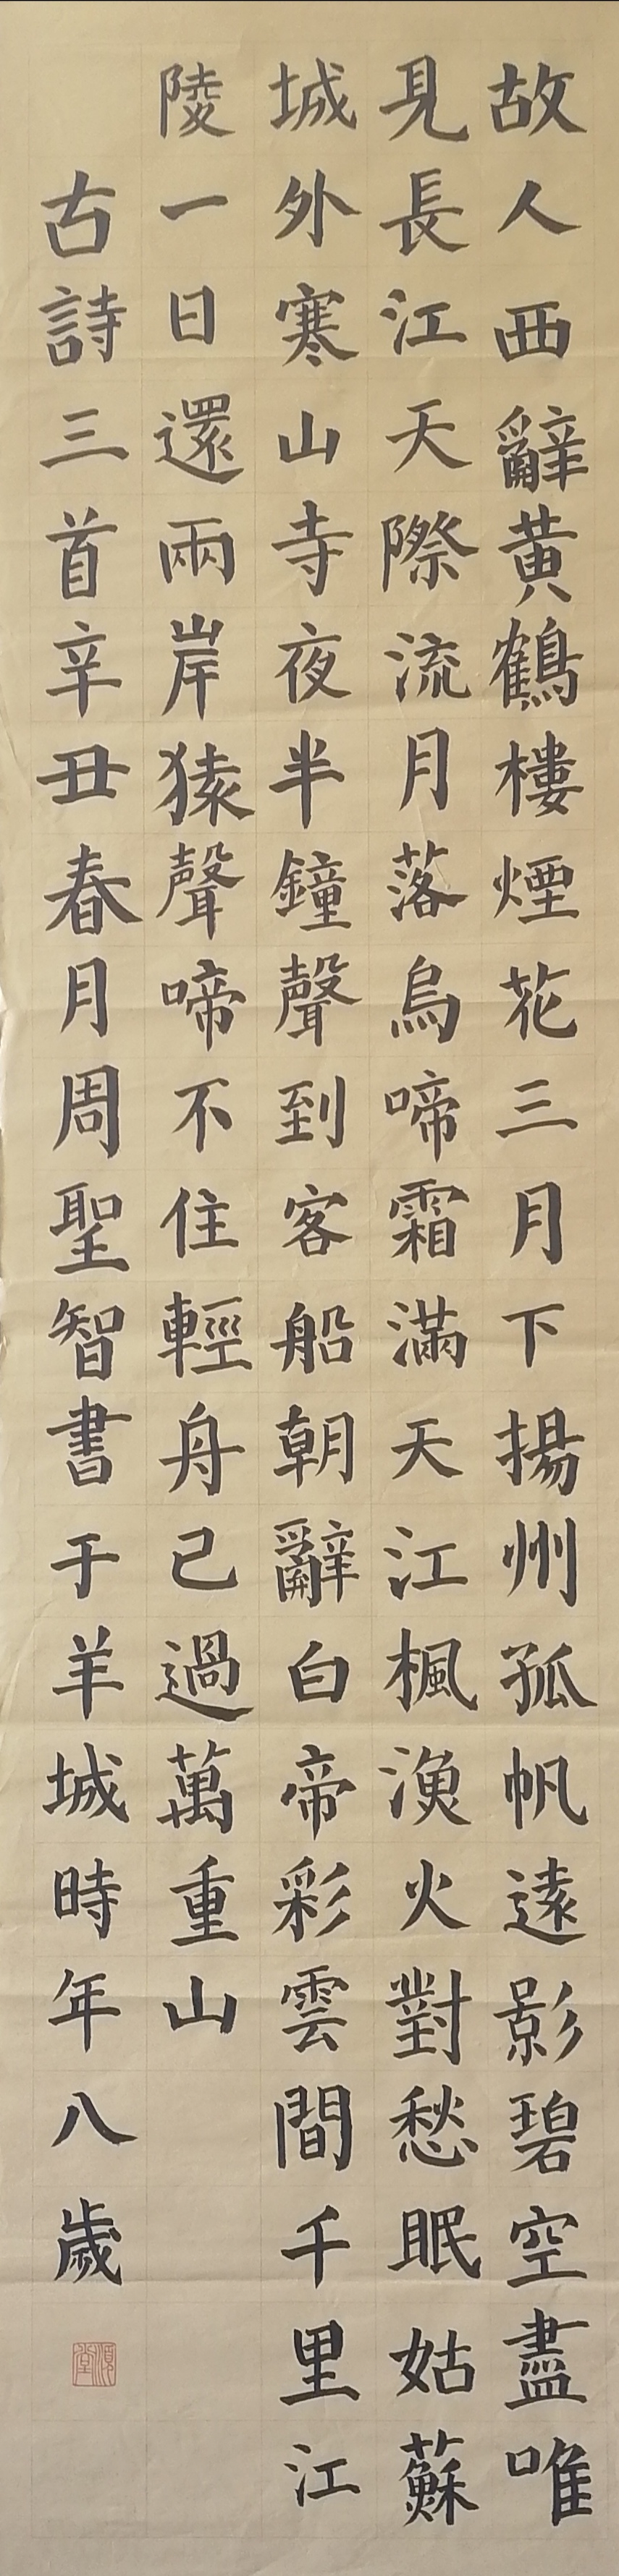 故人西辭黃鶴樓煙花三月下揚州孤帆遠影碧空盡唯
見長江天際流月落烏啼霜滿天江楓漁火對愁眠姑蘇
城外寒山寺夜半鐘聲到客船朝辭白帝彩雲間千里江
陵一日還兩岸猿聲啼不住輕舟已過萬重山
古詩三首辛丑春月周聖智書于羊城時年八歲